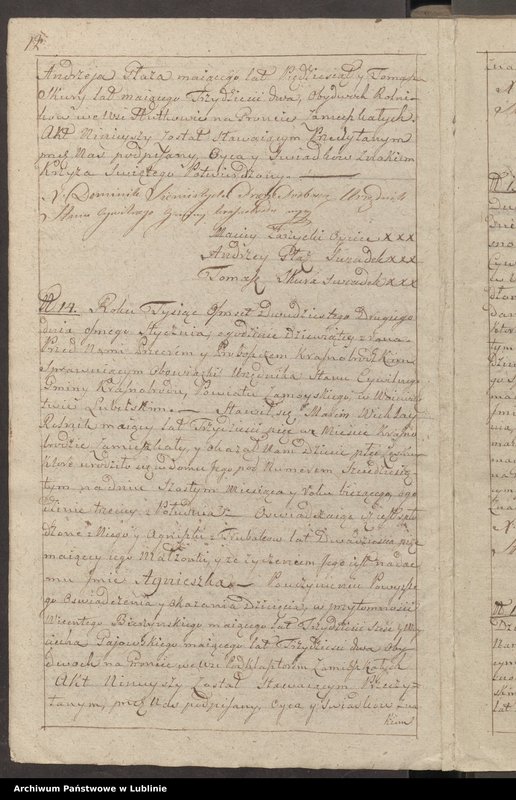 12
Andrzeja Płaza maiącego lat Pięćdziesiąt y Tomasza
Skury lat maiącego Trzydzieści dwa, Obydwóch Rolni-
ków we Wsi na Proncie Zamieszkałych.
Akt Ninieyszy został Stawaiącym Przeczytanym
przez Nas podpisany, Oyca y Świadków Znakiem
Krzyża Świętego Potwierdzony.
X Dominik
Stanu Cywilnego Gminy
Maciey Oyciec XXX
Andrzey Płaz Swiadek XXX
Tomasz Skura Swiadek XXX
N 14. Roku Tysiąc Ośmset Dwudziestego Drugiego
dnia Ósmego Stycznia, o godzinie Dziewiątey z rana
Przed Nami Xiędzem y Proboszczem Krasnobrodzkim
Sprawuiącym Obowiązki Urzędnika Stanu Cywilnego
Gminy Krasnobrodu, Powiatu Zamoyskiego, w Woiewódz-
twie Lubelskim. Stawił się Marcin
Rolnik maiący lat Trzydzieści pięć w Mieście Krasno-
brodzie Zamieszkały, y okazał Nam Dziecie płci Żeńskiey
Które urodziło się w Domu Jego pod Numerem Sześćdziesią-
tym na dniu Szóstym Miesiąca y Roku bieżącego, o go-
dzinie trzeciey z Południa. Oświadczaiąc iż iest spło-
dzone z Niego y Agnieszki z lat Dwadzieścia pięć
maiącey iego Małżonki, y że życzeniem Jego iest nadać
mu Imie Agnieszka. Po uczynieniu Powyższe-
go Oświadczenia y Okazania Dziecięcia, w przytomności
Wincentego maiącego lat Trzydzieści Sześć y Woy-
ciecha maiącego lat Trzydzieści dwa Oby-
dwóch na Proncie we Wsi Podklasztorem Zamieszkałych
Akt Ninieyszy Został Stawaiącym Przeczy-
tanym, przez Nas podpisany, Oyca y Świadków Zna-
kiem
Archiwum Państwowe w Lublinie